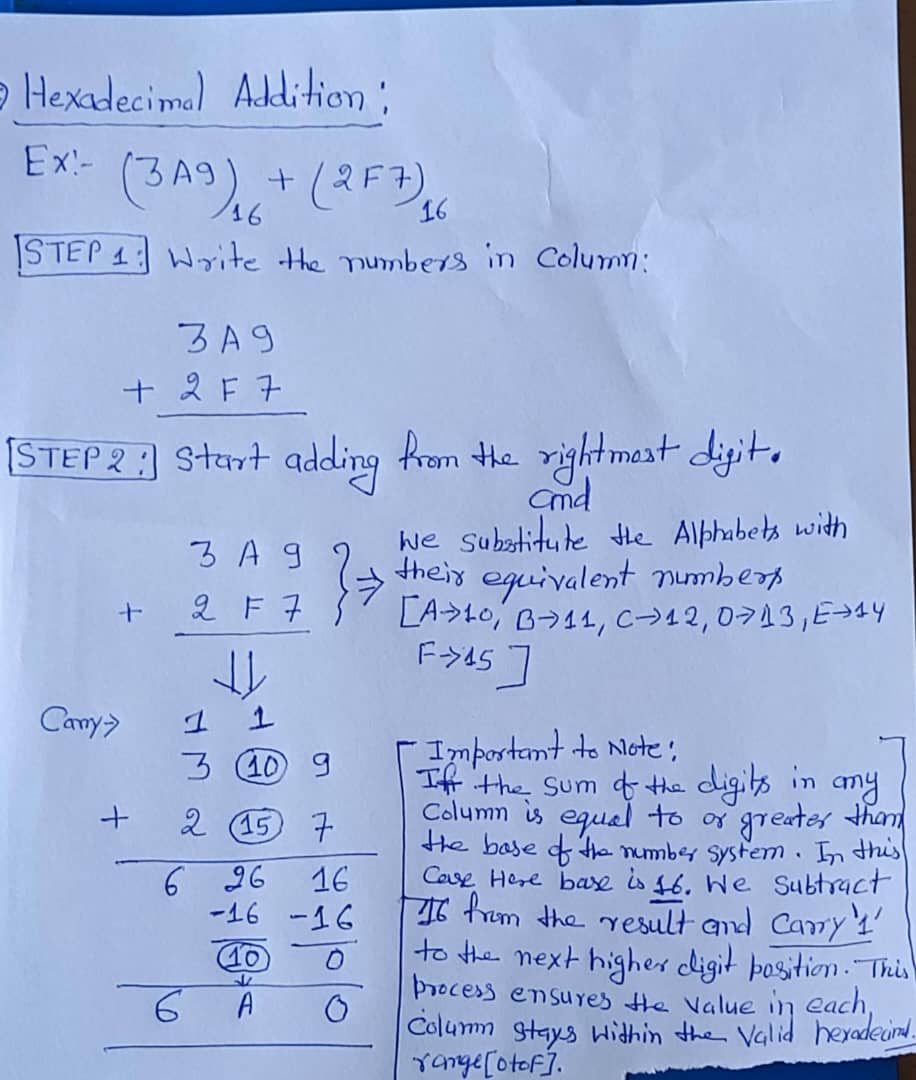 Hexadecimal Addition:
Ex:- (3A9)16 + (2F7)16
STEP 1: Write the numbers in Column:
3 A 9
+ 2 F 7
STEP 2: Start adding from the rightmost digit.
and
We substitute the Alphabets with
3 A 9 } ⇒ their equivalent numbers
+ 2 F 7 [A→10, B→11, C→12, D→13, E→14
F→15]
⇓
Carry→ 1 1
3 10 9
+ 2 15 7
6 26 16
-16 -16
10 0
↓
6 A 0
Important to Note:
If the sum of the digits in any
Column is equal to or greater than
the base of the number system. In this
Case Here base is 16. We Subtract
16 from the result and Carry '1'
to the next higher digit position. This
process ensures the value in each
Column stays within the Valid hexadecimal
range[0toF].